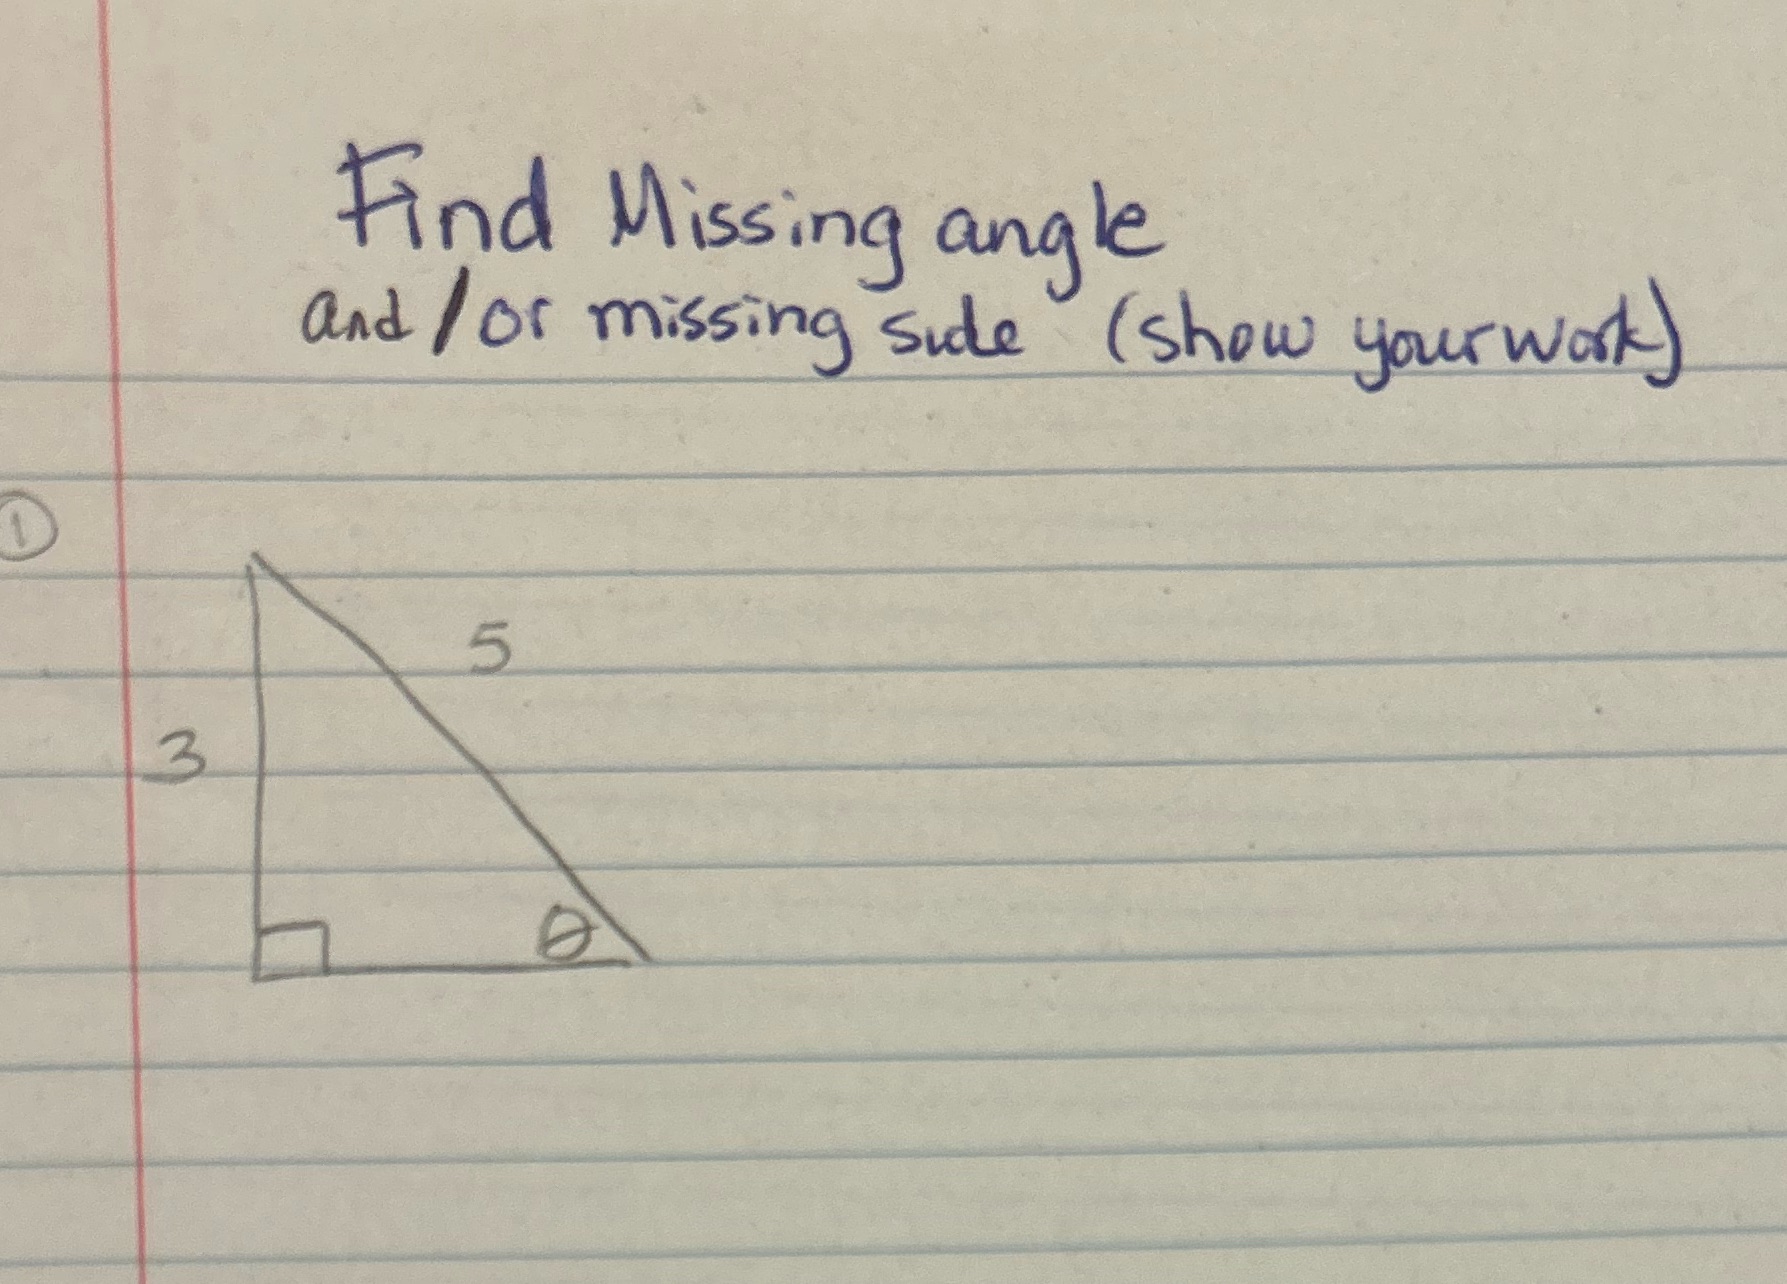 Find Missing angle
and/or missing side (show your work)
①
5
3
θ